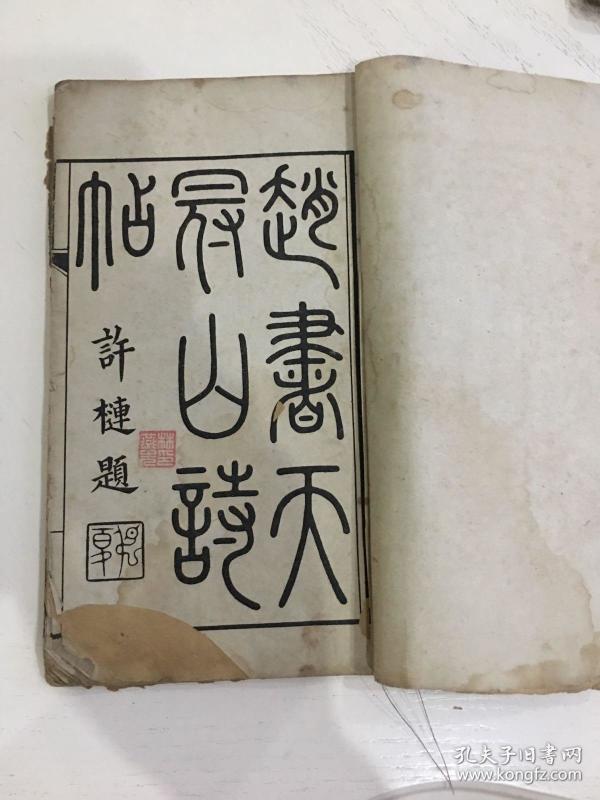 趙書天
冠山詩
帖
許槤題
孔夫子旧书网
www.kongfz.com